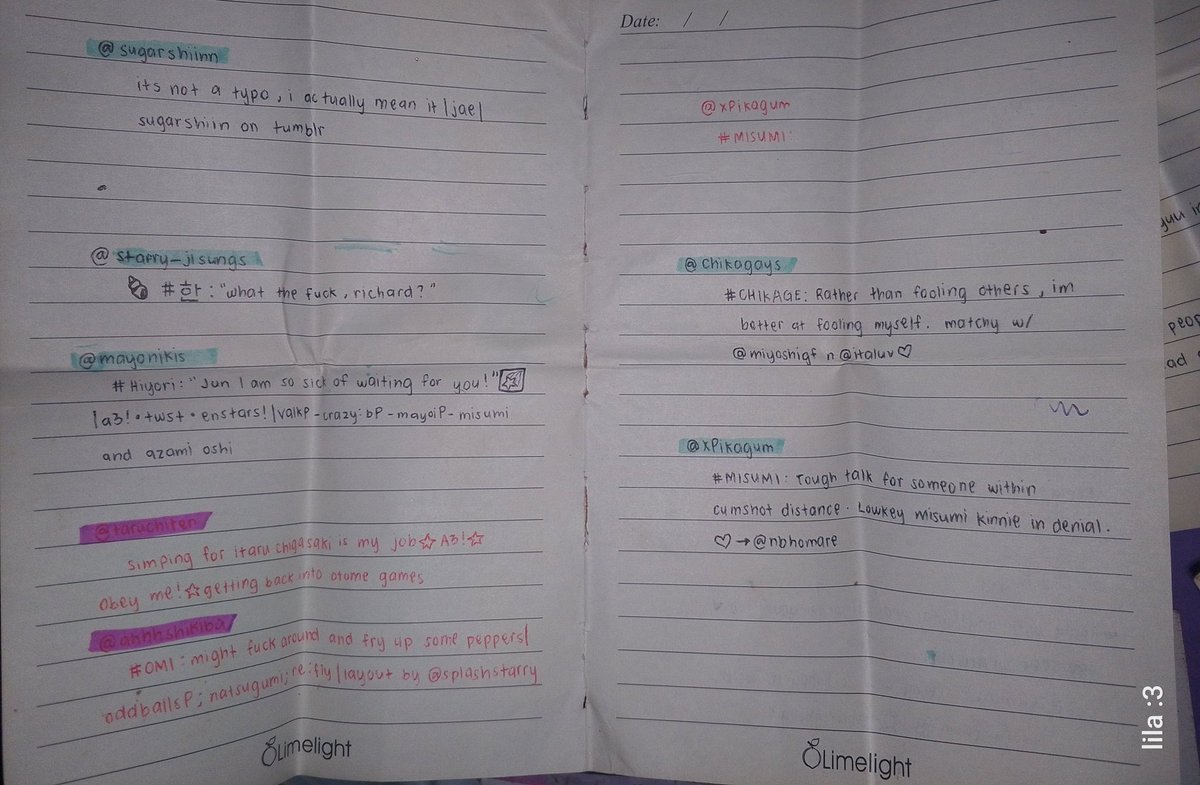 @sugarshiinn
its not a typo, i actually mean it |jae|
sugarshiin on tumblr
@starry-jisungs
#한: "what the fuck, richard?"
@mayonikis
#Hiyori: "Jun I am so sick of waiting for you!"
|a3! • twst • enstars! |valkP - crazy:bP - mayoiP - misumi
and azami oshi
@taruchiten
simping for itaru chigasaki is my job☆ A3!☆
obey me!☆getting back into otome games
@ahhhshikiba
#OMI: might fuck around and fry up some peppers|
oddballsP; natsugumi; re:fly |layout by @splashstarry
Limelight
Date: / /
@xPikagum
#MISUMI:
@chikagays
#CHIKAGE: Rather than fooling others, im
better at fooling myself. matchy w/
@miyoshigf n @italuv♡
@xPikagum
#MISUMI: Tough talk for someone within
cumshot distance. Lowkey misumi kinnie in denial.
♡→@nbhomare
Limelight
lila :3